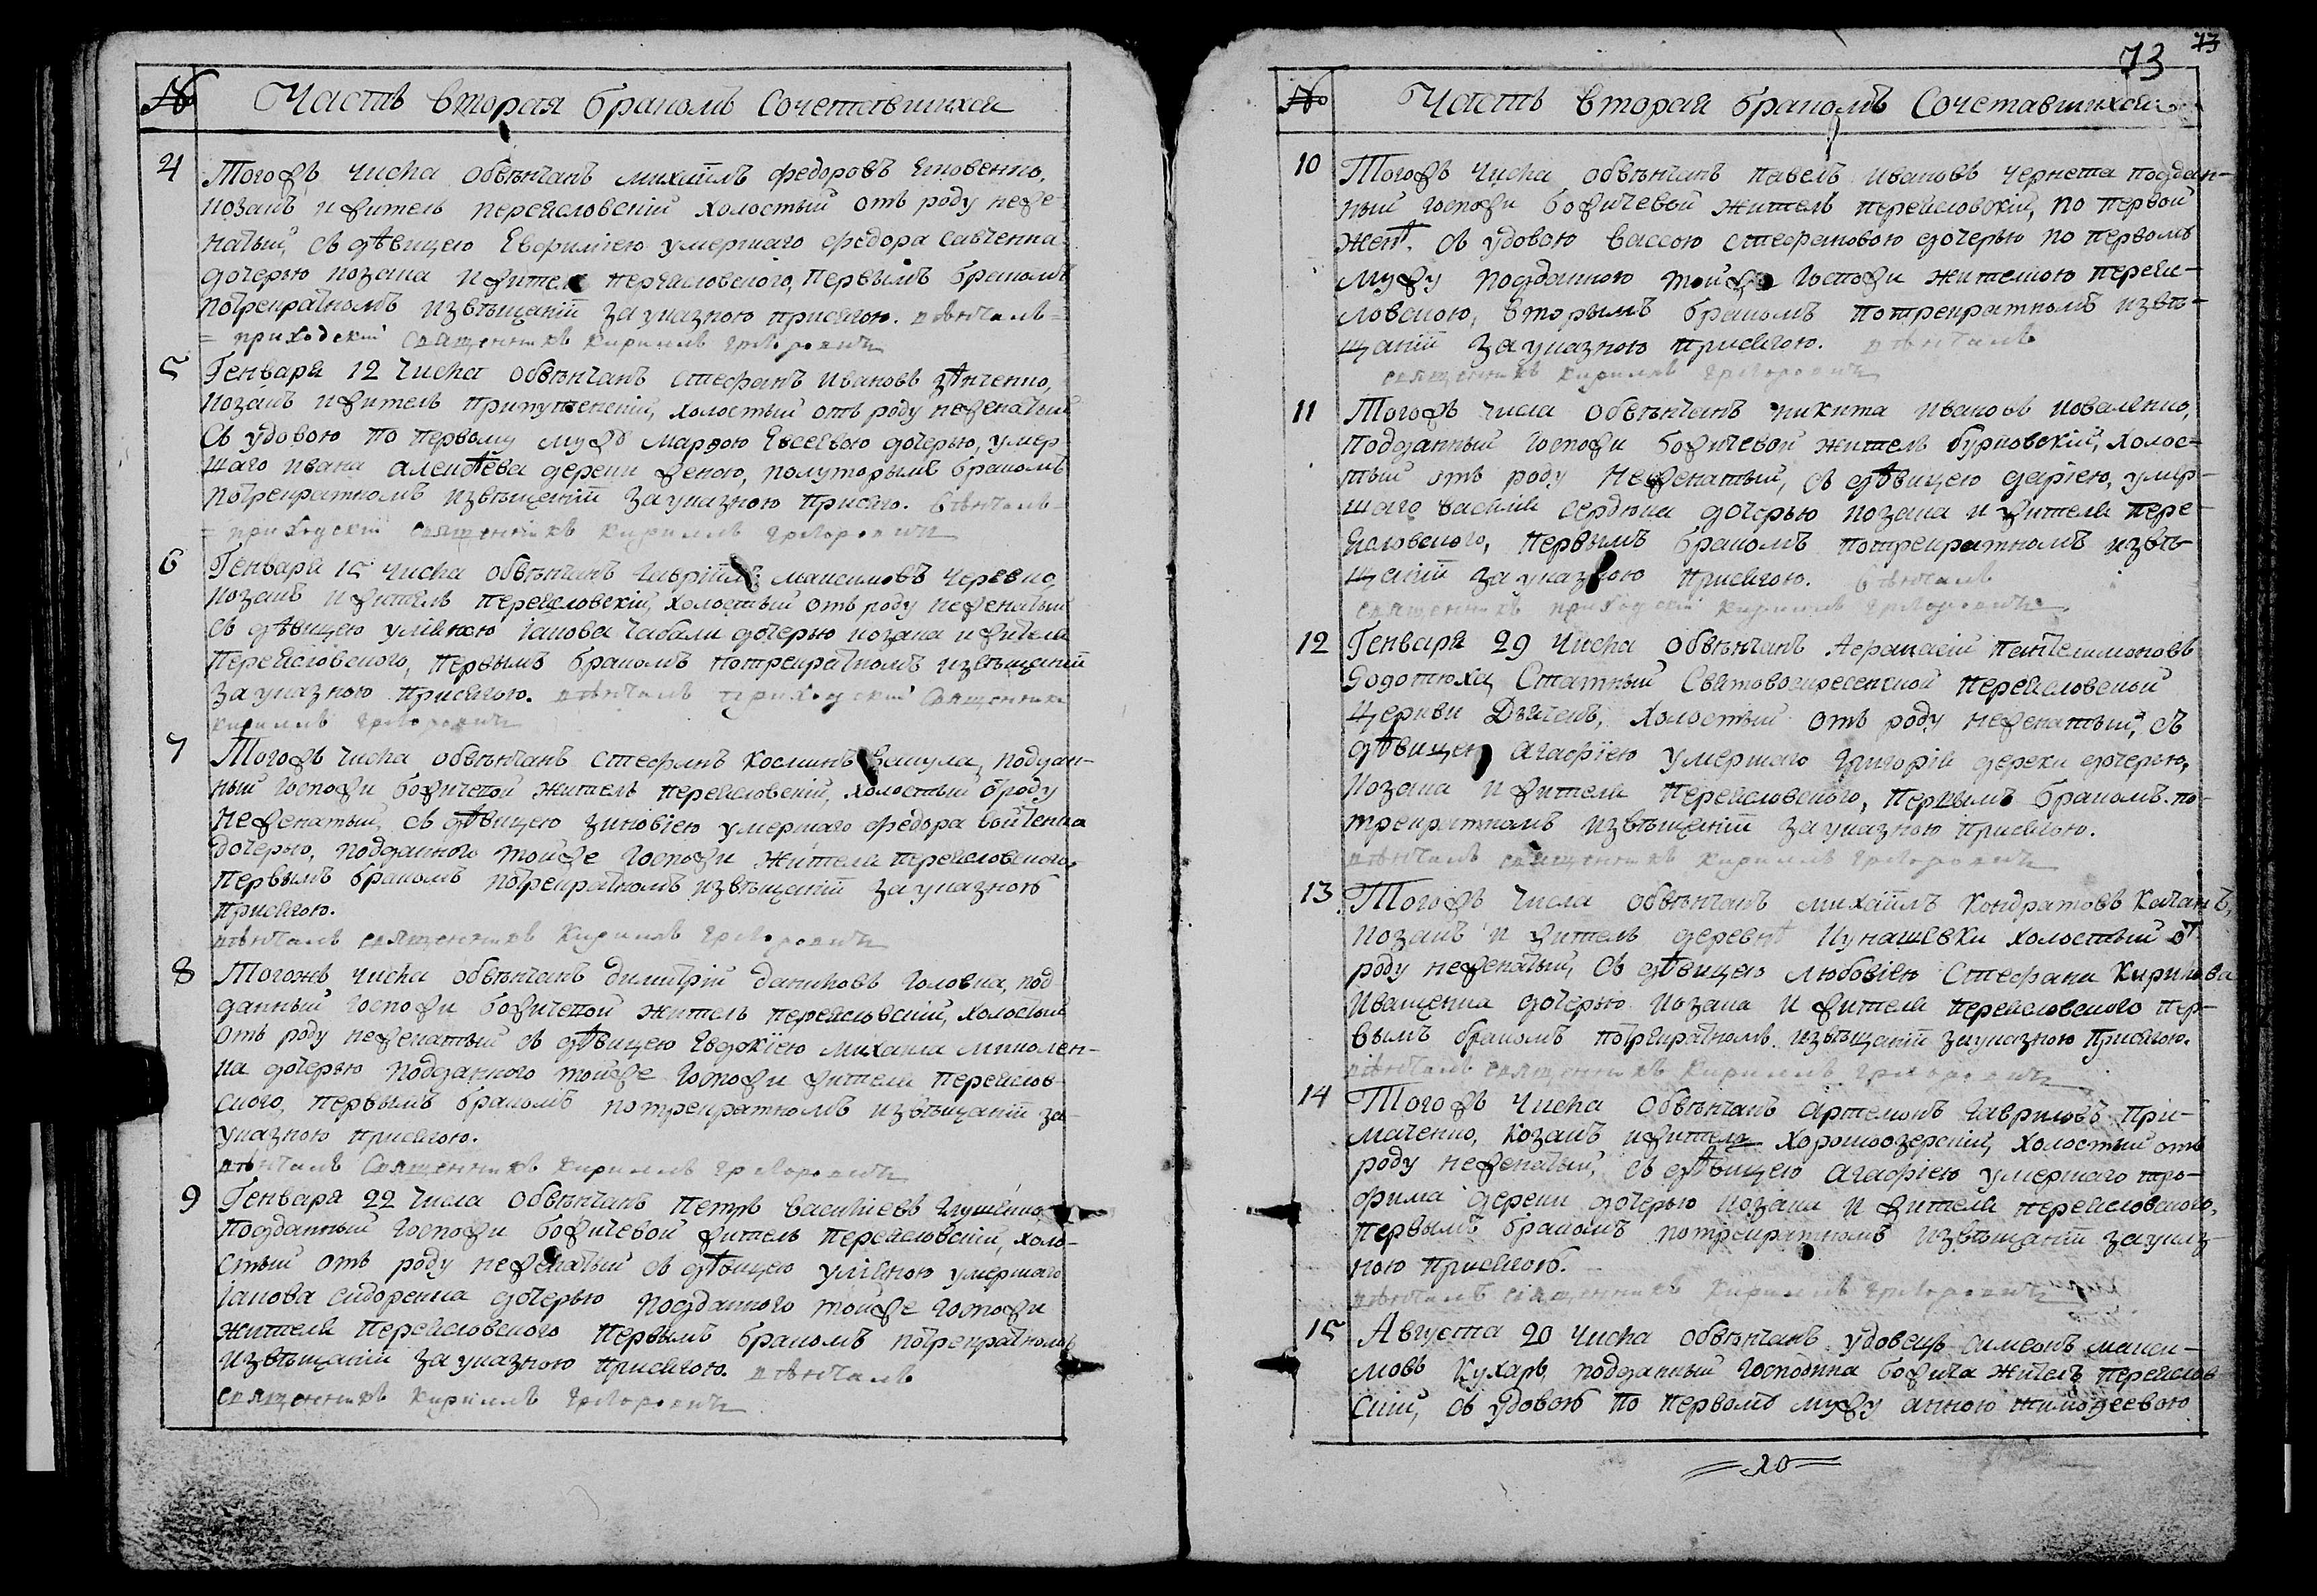 № Часть вторая бракомъ сочетавшихся
4 Тогожъ числа обвѣнчанъ михаилъ федоровъ
козакъ и житель переясловскій холостый отъ роду неже-
натый, съ дѣвицею Евфиміею умершаго федора савченка
дочерью козака и жителя переясловского, первымъ бракомъ
потрекратномъ извѣщаніи за указною присягою. вѣнчалъ =
= приходскій священникъ кириллъ григоровичъ
5 Генваря 12 числа обвѣнчанъ стефанъ ивановъ зѣнченко,
козакъ и житель холостый отъ роду неженатый
съ удовою по первому мужѣ марфою Евсеевою дочерью, умер-
шаго ивана алексѣева дереки женою, полуторымъ бракомъ
потрекратномъ извѣщаніи за указною присягою. вѣнчалъ =
= приходскій священникъ кириллъ григоровичъ
6 Генваря 15 числа обвѣнчанъ гавріилъ максимовъ черевко
козакъ и житель переясловскій, холостый отъ роду неженатый
съ дѣвицею уліяною іакова чабали дочерью козака и жителя
переясловского, первымъ бракомъ потрекратномъ извѣщаніи
за указною присягою. вѣнчалъ приходскій священникъ
кириллъ григоровичъ
7 Тогожъ числа обвѣнчанъ стефанъ косминъ вакула, поддан-
ный госпожи божичевой житель переясловскій, холостый ѿ роду
неженатый, съ дѣвицею зиновіею умершаго федора войтенка
дочерью, подданного тойже госпожи жителя переясловского,
первымъ бракомъ потрекратномъ извѣщаніи за указною
присягою.
вѣнчалъ священникъ кириллъ григоровичъ
8 Тогожъ числа обвѣнчанъ димитрій даниловъ головка, под
данный госпожи божичевой житель переясловскій, холостый
отъ роду неженатый съ дѣвицею Евдокіею михаила миколен-
ка дочерью подданного тойже госпожи жителя переяслов-
ского, первымъ бракомъ потрекратномъ извѣщаніи за
указною присягою.
вѣнчалъ священникъ кириллъ григоровичъ
9 Генваря 22 числа обвѣнчанъ петръ василіевъ
подданный госпожи божичевой житель переясловскій, холо-
стый отъ роду неженатый съ дѣвицею уліяною умершаго
іакова сидоренка дочерью подданного тойже госпожи
жителя переясловского первымъ бракомъ потрекратномъ
извѣщаніи за указною присягою. вѣнчалъ
священникъ кириллъ григоровичъ
73 73
№ Часть вторая бракомъ Сочетавшихся
10 Тогожъ числа обвѣнчанъ павелъ ивановъ чернета поддан-
ный госпожи божичевой житель переясловскій, по первой
женѣ. съ удовою вассою стефановою дочерью по первомъ
мужу подданною тойже госпожи жителкою перея-
словскою, вторымъ бракомъ потрекратномъ извѣ-
щаніи за указною присягою. вѣнчалъ
священникъ кириллъ григоровичъ
11 Тогожъ числа обвѣнчанъ никита ивановъ коваленко,
подданный госпожи божичевой житель бурковскій, холос-
тый отъ роду неженатый, съ дѣвицею даріею, умер-
шаго василія сердюка дочерью козака и жителя пере-
ясловского, первымъ бракомъ потрекратномъ извѣ-
щаніи за указною присягою. вѣнчалъ
священникъ приходскій кириллъ григоровичъ
12 Генваря 29 числа обвѣнчанъ Афанасій пантелимоновъ
Статный Святовоскресенской переясловской
церкви Дьячекъ, холостый отъ роду неженатый, съ
дѣвицею агафіею умершаго григорія дереки дочерью,
козака и жителя переясловского, первымъ бракомъ по-
трекратномъ извѣщаніи за указною присягою.
вѣнчалъ священникъ кириллъ григоровичъ
13 Тогожъ числа обвѣнчанъ михаилъ кондратовъ качанъ,
козакъ и житель деревнѣ кунашевки холостый ѿ
роду неженатый, съ дѣвицею любовію стефана кирилова
иващенка дочерью козака и жителя переясловского пер-
вымъ бракомъ потрекратномъ извѣщаніи за указною присягою.
вѣнчалъ священникъ кириллъ григоровичъ
14 Тогожъ числа обвѣнчанъ артемонъ гавриловъ при-
маченко, козакъ и житель хорошоозерскій, холостый отъ
роду неженатый, съ дѣвицею агафіею умершаго тро-
фима дереки дочерью козака и жителя переясловского,
первымъ бракомъ потрекратномъ извѣщаніи за указ-
ною присягою.
вѣнчалъ священникъ кириллъ григоровичъ
15 Августа 20 числа обвѣнчанъ удовецъ симеонъ макси-
мовъ кухаръ, подданный господина божича житель переяслов
скій, съ удовою по первомъ мужу анною тимофеевою